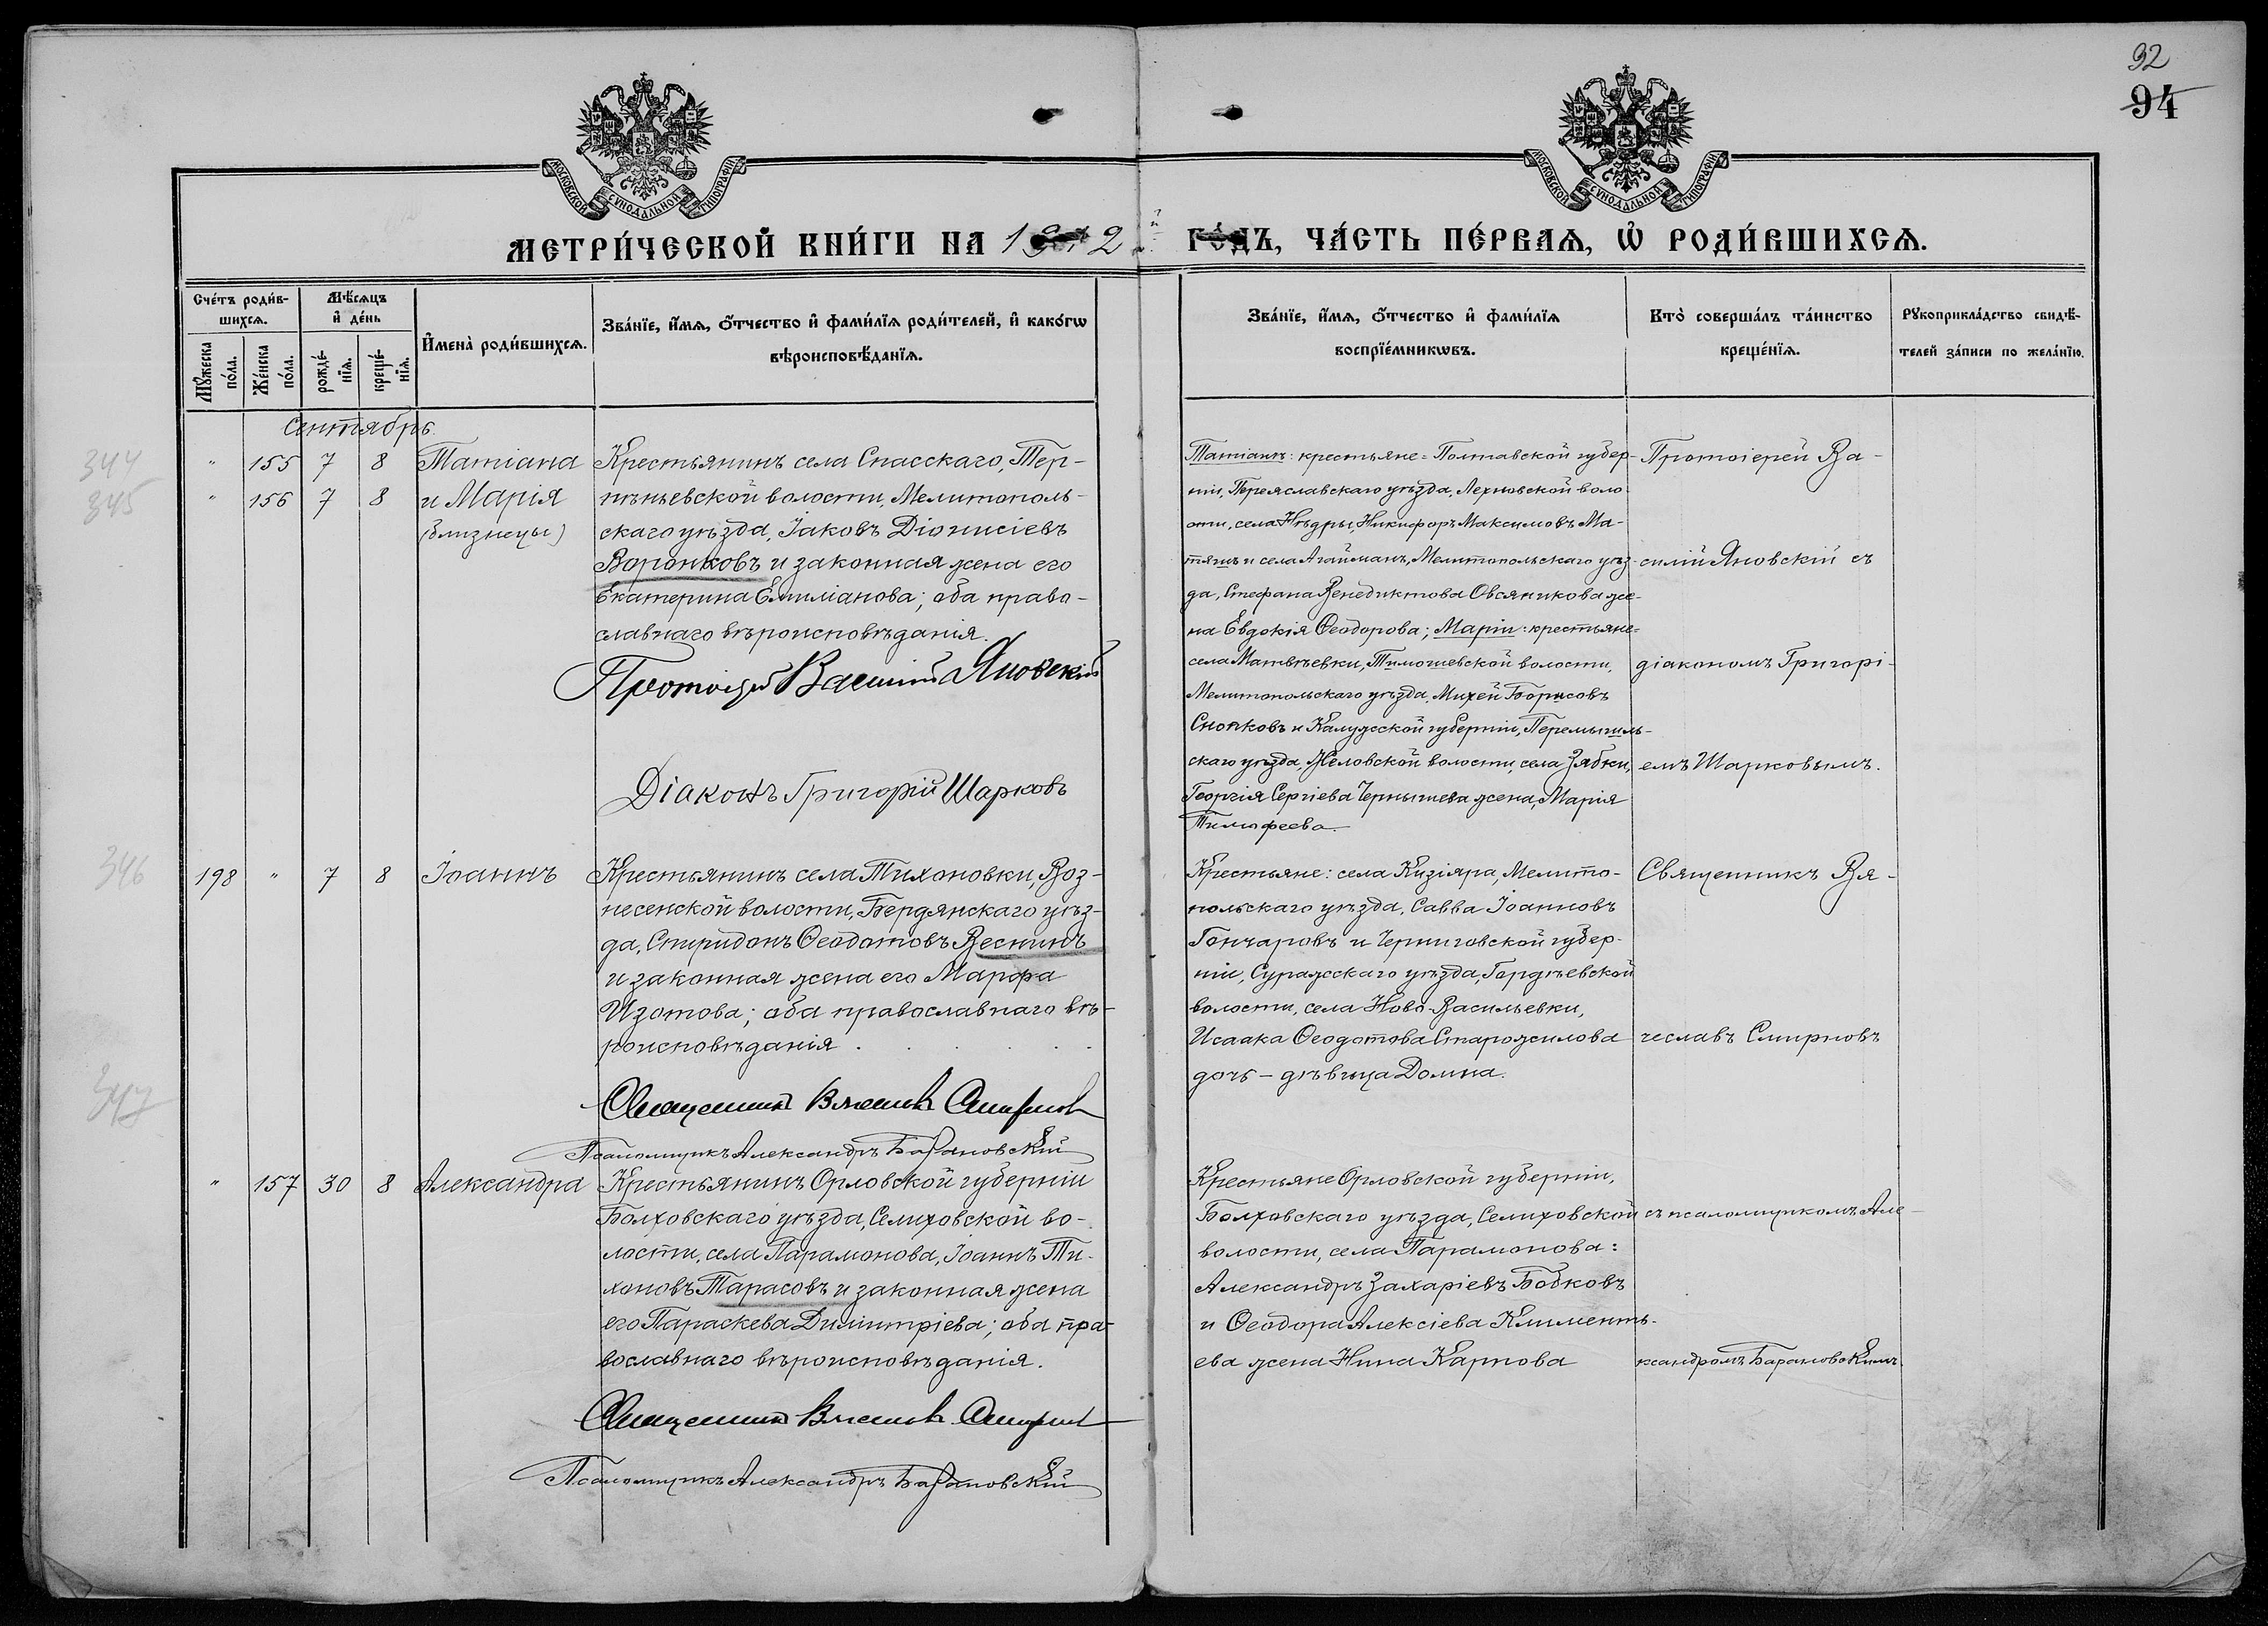 92
94
МОСКОВСКОЙ СѴНОДАЛЬНОЙ ТИПОГРАФІИ
МОСКОВСКОЙ СѴНОДАЛЬНОЙ ТИПОГРАФІИ
МЕТРИ́ЧЕСКОЙ КНИ́ГИ НА 1912й ГО́ДЪ, ЧА́СТЬ ПЕ́РВАѦ, Ѡ҆ РОДИ́ВШИХСѦ.
Сче́тъ роди́в-
шихсѧ.
Мꙋ́жеска по́ла.
Же́нска по́ла.
Мѣ́сѧцъ
и҆ де́нь
рожде́-
нїѧ.
креще́-
нїѧ.
И҆мена̀ роди́вшихсѧ.
Зва́нїе, и҆́мѧ, ѻ҆́тчество и҆ фами́лїѧ роди́телей, и҆ како́гѡ
вѣроисповѣ́данїѧ.
Зва́нїе, и҆́мѧ, ѻ҆́тчество и҆ фами́лїѧ
воспрїе́мникѡвъ.
Кто̀ соверша́лъ та́инство
креще́нїѧ.
Рꙋкоприкла́дство свидѣ́-
телей за́писи по жела́нїю.
Сентябрь
344
345
" 155 7 8 Татіана
" 156 7 8 и Марія
(близнецы)
Крестьянинъ села Спасскаго, Тер-
пѣньевской волости, Мелитополь-
скаго уѣзда, Іаковъ Діонисіевъ
Воронковъ и законная жена его
Екатерина Емиліанова; оба право-
славнаго вѣроисповѣданія.
Протоіерей Василій Яновскій
Діаконъ Григорій Шарковъ
Татіанъ: крестьяне = Полтавской губер-
ніи, Переяславскаго уѣзда, воло
сти, села Нѣдры, Никифоръ Максимовъ Ма-
тяшъ и села Агайманъ, Мелитопольскаго уѣз-
да, Стефана Венедиктова Овсяникова же-
на Евдокія Ѳеодорова; Маріи: крестьяне=
села Матвѣевки, Тимошевской волости,
Мелитопольскаго уѣзда, Михей Борисовъ
Снопковъ и Калужской губерніи, Перемышль-
скаго уѣзда, Желовской волости, села Зябки,
Георгія Сергіева Чернышева жена, Марія
Тимофеева.
Протоіерей Ва-
силій Яновскій съ
діакономъ Григорі-
емъ Шарковымъ.
346
198 " 7 8 Іоаннъ
Крестьянинъ села Тихоновки, Воз-
несенской волости, Бердянскаго уѣз-
да, Спиридонъ Ѳеодотовъ Веснинъ
и законная жена его Марфа
Изотова; оба православнаго вѣ-
роисповѣданія . . . . .
Священникъ Вячеславъ Смирновъ
Псаломщикъ Александръ Барановскій
Крестьяне: села Кизіяра, Мелито-
польскаго уѣзда, Савва Іоанновъ
Гончаровъ и Черниговской губер-
ніи, Суражскаго уѣзда, Гордѣевской
волости, села Ново-Васильевки,
Исаака Ѳеодотова Старожилова
дочь – дѣвица Домна.
Священникъ Вя-
чеславъ Смирновъ
съ псаломщикомъ Але-
ксандромъ Барановскимъ.
347
" 157 30 8 Александра
Крестьянинъ Орловской губерніи
Болховскаго уѣзда, Селиховской во-
лости, села Парамонова, Іоаннъ Ти-
хоновъ Тарасовъ и законная жена
его Параскева Димитріева; оба пра-
вославнаго вѣроисповѣданія.
Священникъ Вячеславъ Смирновъ
Псаломщикъ Александръ Барановскій
Крестьяне Орловской губерніи,
Болховскаго уѣзда, Селиховской
волости, села Парамонова:
Александръ Захаріевъ Бобковъ
и Ѳеодора Алексіева Климентъ-
ева жена Нина Карпова